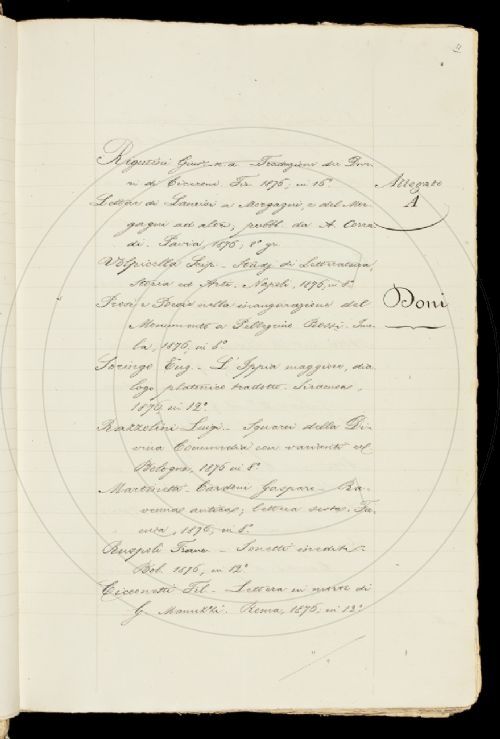 Rigutini Gius. e a. - Traduzione dei Dove-
ri di Cicerone. Fir. 1875, in 16.°
Lettere di Lancisi a Morgagni, e del Mor-
gagni ad altri, pubbl. da A. Corra-
di. Pavia, 1875, 8.° gr.
Volpicella Scip. - Studj di Letteratura,
Storia ed Arte. Napoli, 1875, in 8.°
Prose e Poesie nella inaugurazione del
Monumento a Pellegrino Rossi. Imo-
la, 1875, in 8.°
Eug. - L'Ippia maggiore, dia-
logo platonico tradotto. Siracusa,
1875, in 12.°
Razzolini Luigi - Squarci della Di-
vina Commedia con varianti ec.
Bologna, 1875 in 8.°
Martinetti-Cardoni Gaspare - Ra-
venna antica; lettera sesta. Fa-
enza, 1875, in 8.°
Ruspoli Franc. - Sonetti inediti.
Bol. 1875, in 12.°
Cicconetti Fil. - Lettera in morte di
G. Manuzzi. Roma, 1875, in 12.°
Allegato
A
Doni